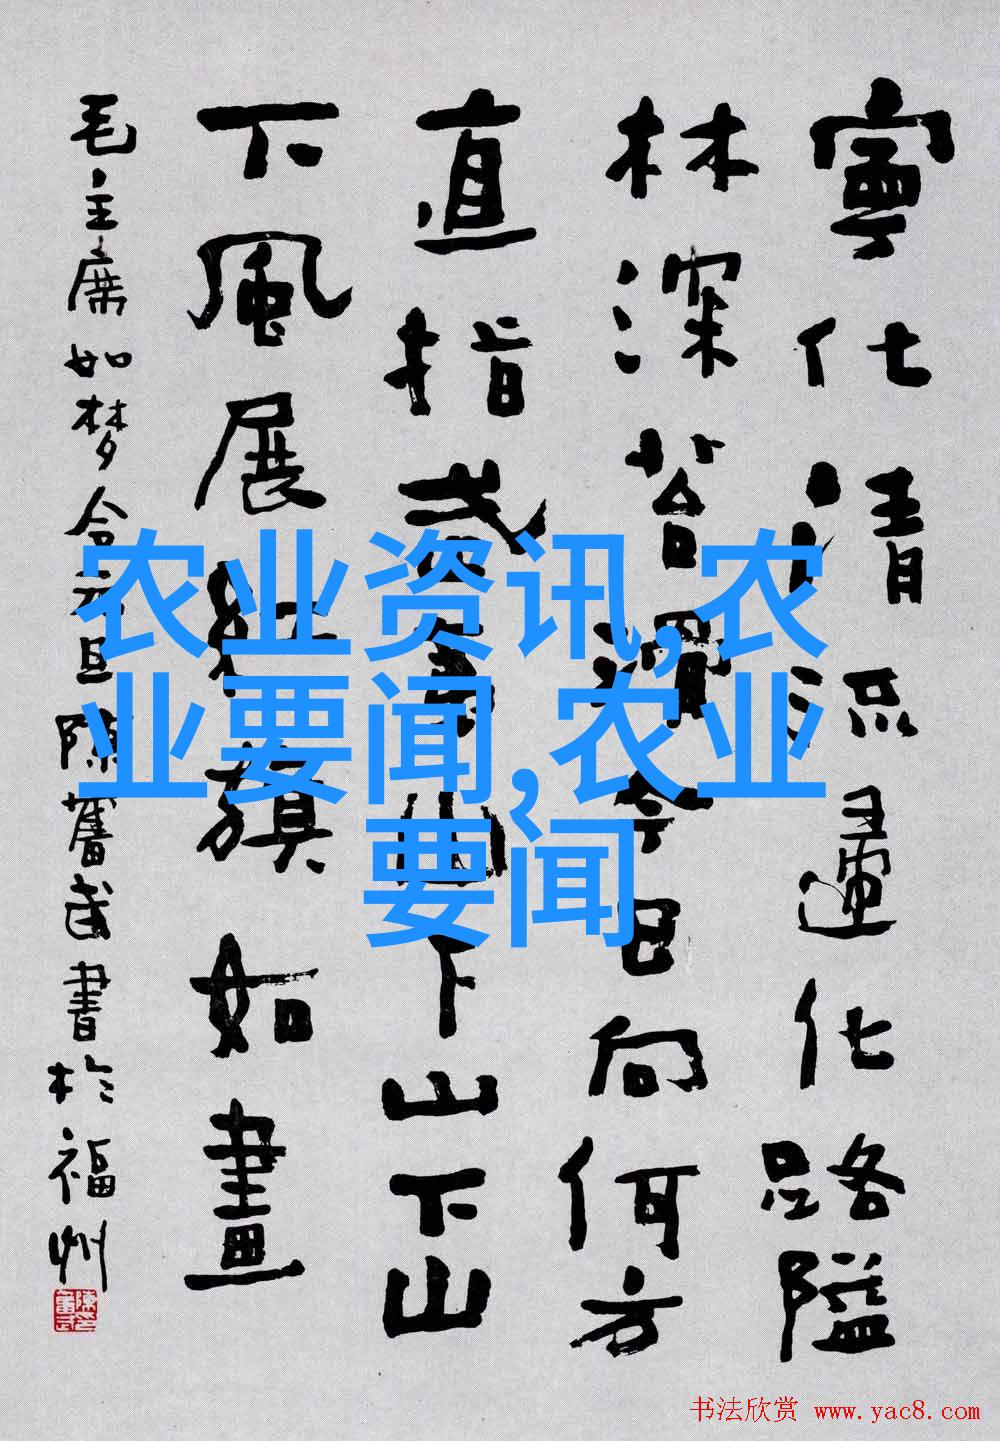 寧化清流歸化路隘
林深苔滑今日向何方
直指武夷山下山下山
下風展紅旗如畫
毛主席如梦令元旦陳奮武書於福州
农业资讯,农
业要闻,农业
要闻
书法欣赏 www.yac8.com